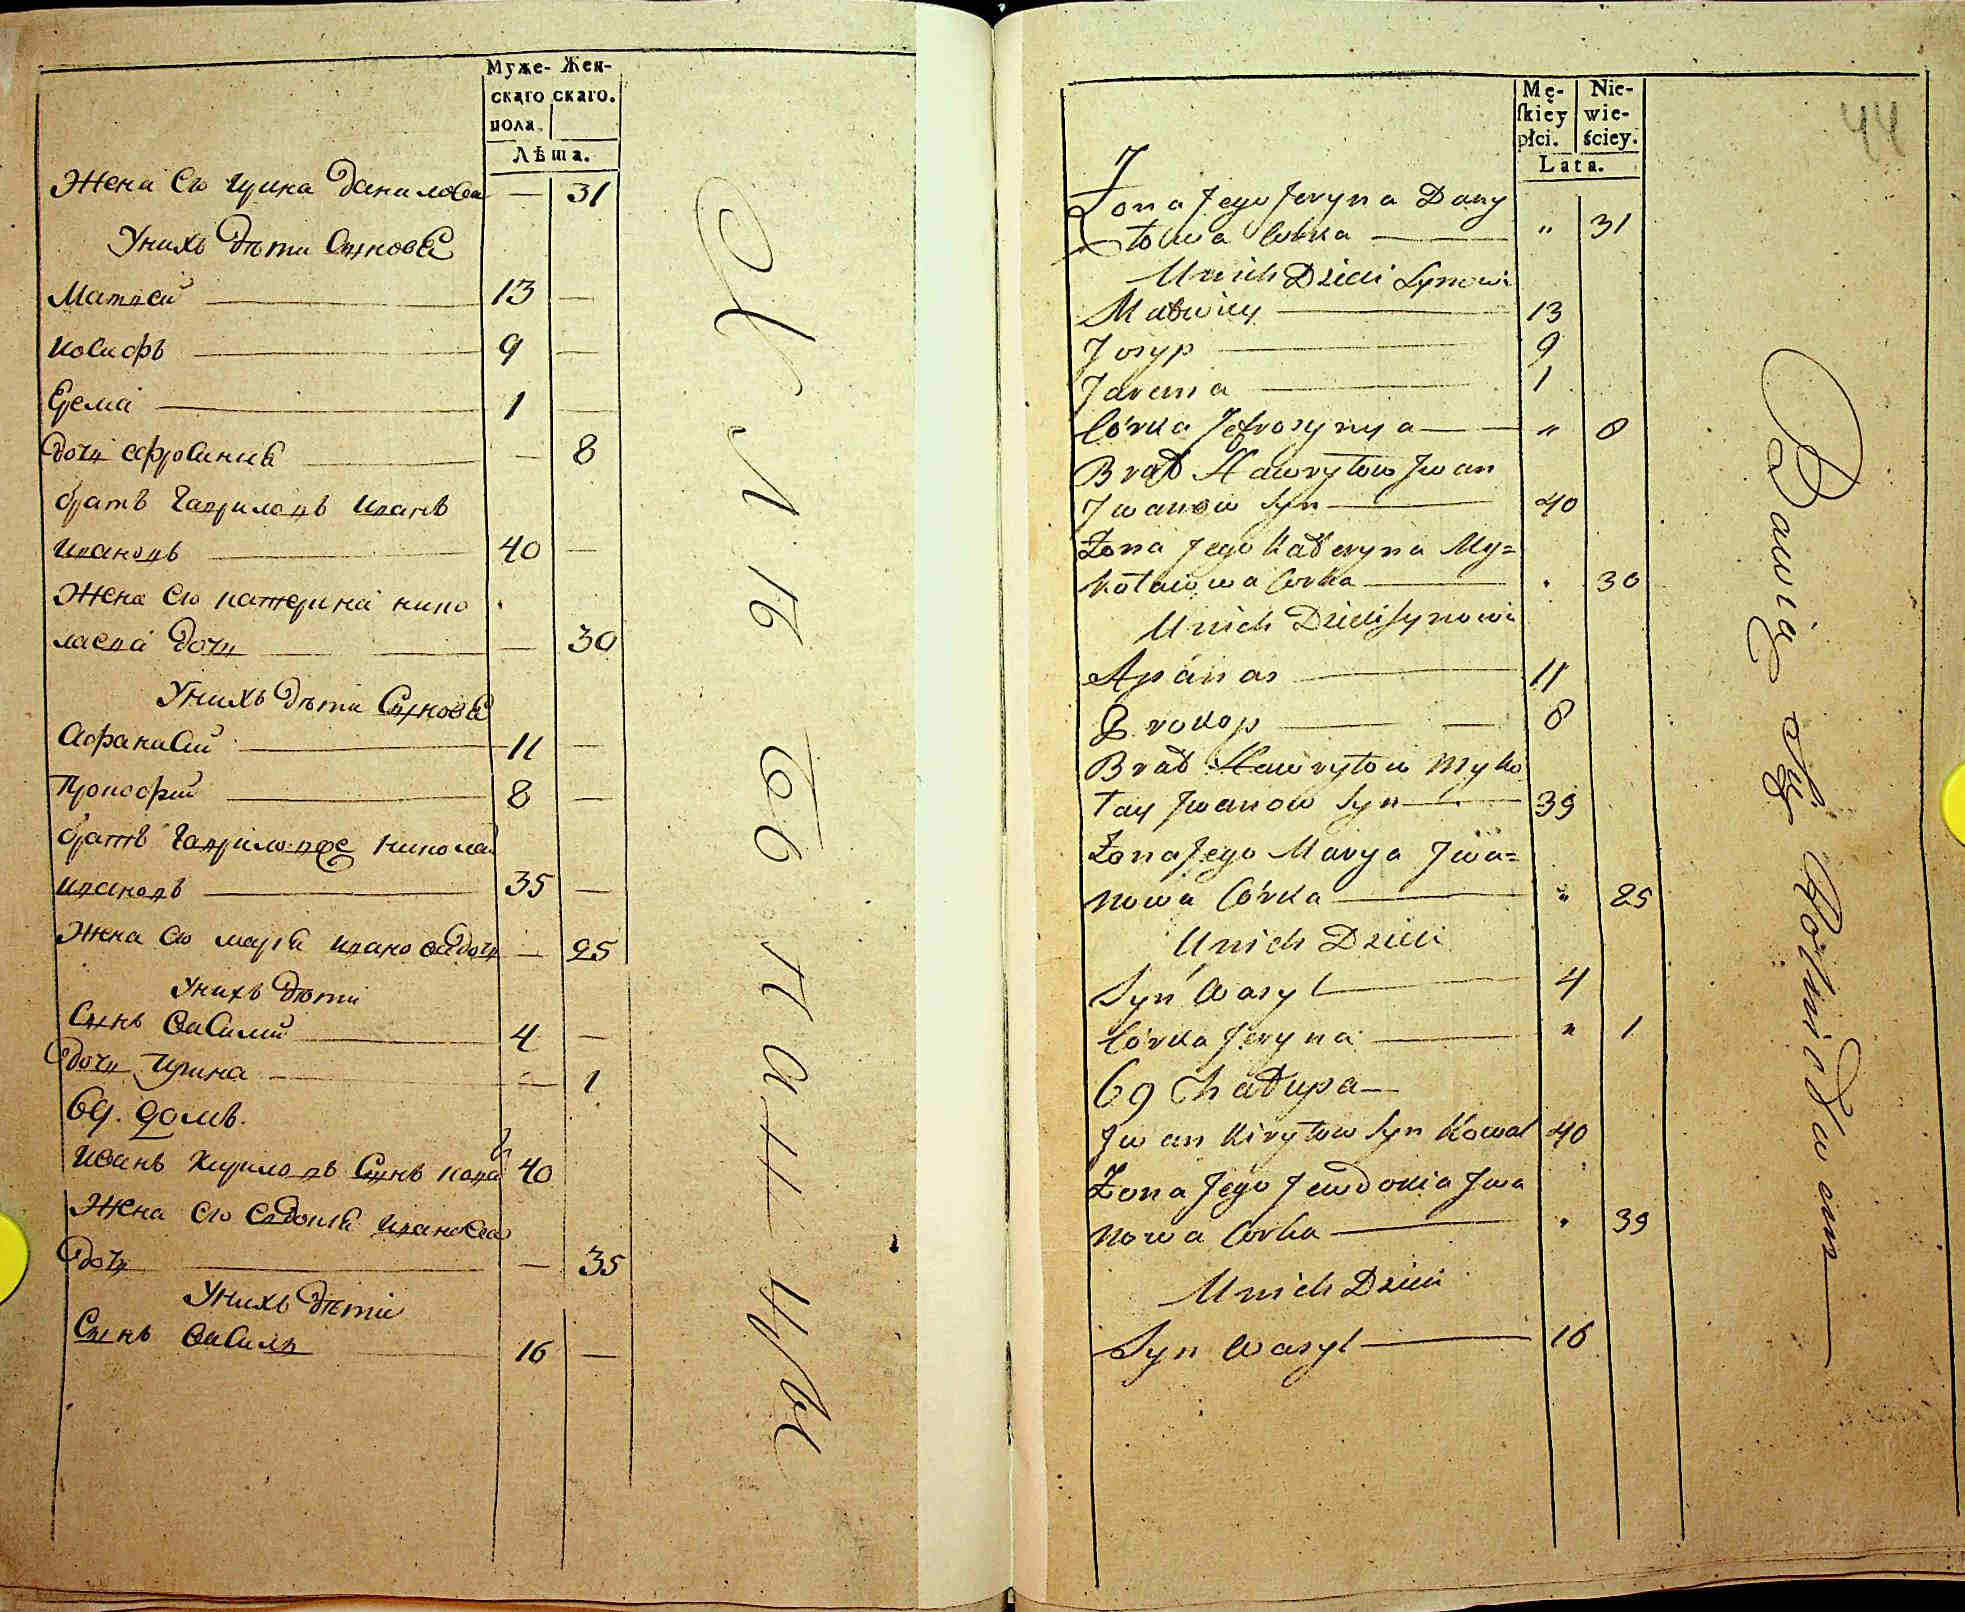 Муже- Жен-
скаго скаго.
пола.
Лѣта.
Жена его Ирина Данилова — 31
У нихъ дѣти Сынове
Матвей 13 —
Иосифъ 9 —
Ерема 1 —
дочь Афросиния — 8
братъ Гаврыловъ Иванъ
Ивановъ 40 —
Жена его катерина нико
лаева дочь — 30
У нихъ дѣти Сынове
Афанасий 11 —
Прокофий 8 —
братъ Гавриловже Николай
Ивановъ 35 —
Жена его Мария Иванова дочь — 25
У нихъ дѣти
Сынъ Василий 4 —
дочь Ирина — 1
69. домъ.
Иванъ Кириловъ Сынъ ковал 40
Жена его Евдокия Иванова
дочь — 35
У нихъ дѣти
Сынъ Василь 16 —
ХЛѢБОПАШЦЫ
44
Mę- Nie-
skiey wie-
płci. ściey.
Lata.
Żona Jego Jeryna Dany
łowa Corka " 31
U nich Dzieci Synowi
Matwiey 13
Josyp 9
Jarema 1
Córka Jefrosynya " 8
Brat Hawryłow Jwan
Jwanow Syn 40
Żona Jego Kateryna My=
kołaiowa Corka . 30
U nich Dzieci Synowi
Apanas 11
Prokop 8
Brat Hawryłow Myko
łay Jwanow Syn 39
Żona Jego Marya Jwa=
nowa Córka " 25
U nich Dzieci
Syn Wasyl 4
Córka Jeryna " 1
69 Chałupa
Jwan Kiryłow Syn Kowal 40
Żona Jego Jewdokia Jwa
nowa Corka . 39
U nich Dzieci
Syn Wasyl 16
Bawią się Rolnictwem